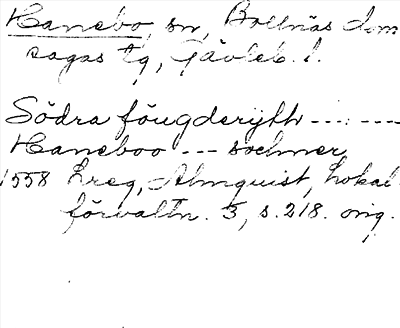 Hanebo, sn, Bollnäs dom
sagas tg, Gävleb. l.
Södra föugderijth -- . . ---
Haneboo --- sochner
1558 Lreg, Almquist, Lokal
förvaltn. 3, s. 218. orig.